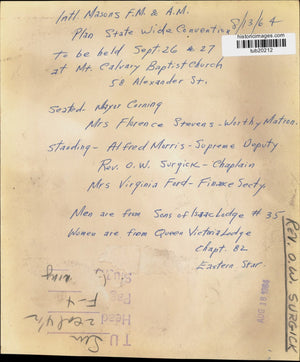 Intl. Masons F.M. & A.M.
8/13/64
Plan State Wide Convention
to be held Sept. 26 & 27
at Mt. Calvary Baptist Church
58 Alexander St.
Seated Mayor Corning
Mrs Florence Stevens - Worthy Matron.
Standing - Alfred Morris - Supreme Deputy
Rev. O.W. Surgick - Chaplain
Mrs Virginia Ford - Finance Secty.
Men are from Sons of Isaac Lodge # 35
Women are from Queen Victoria Lodge
Chapt. 82
Eastern Star.
historicimages.com
tub20212
REV. O.W. SURGICK
AUG 18 1964
T U
Head
Pag
F-4
Sun